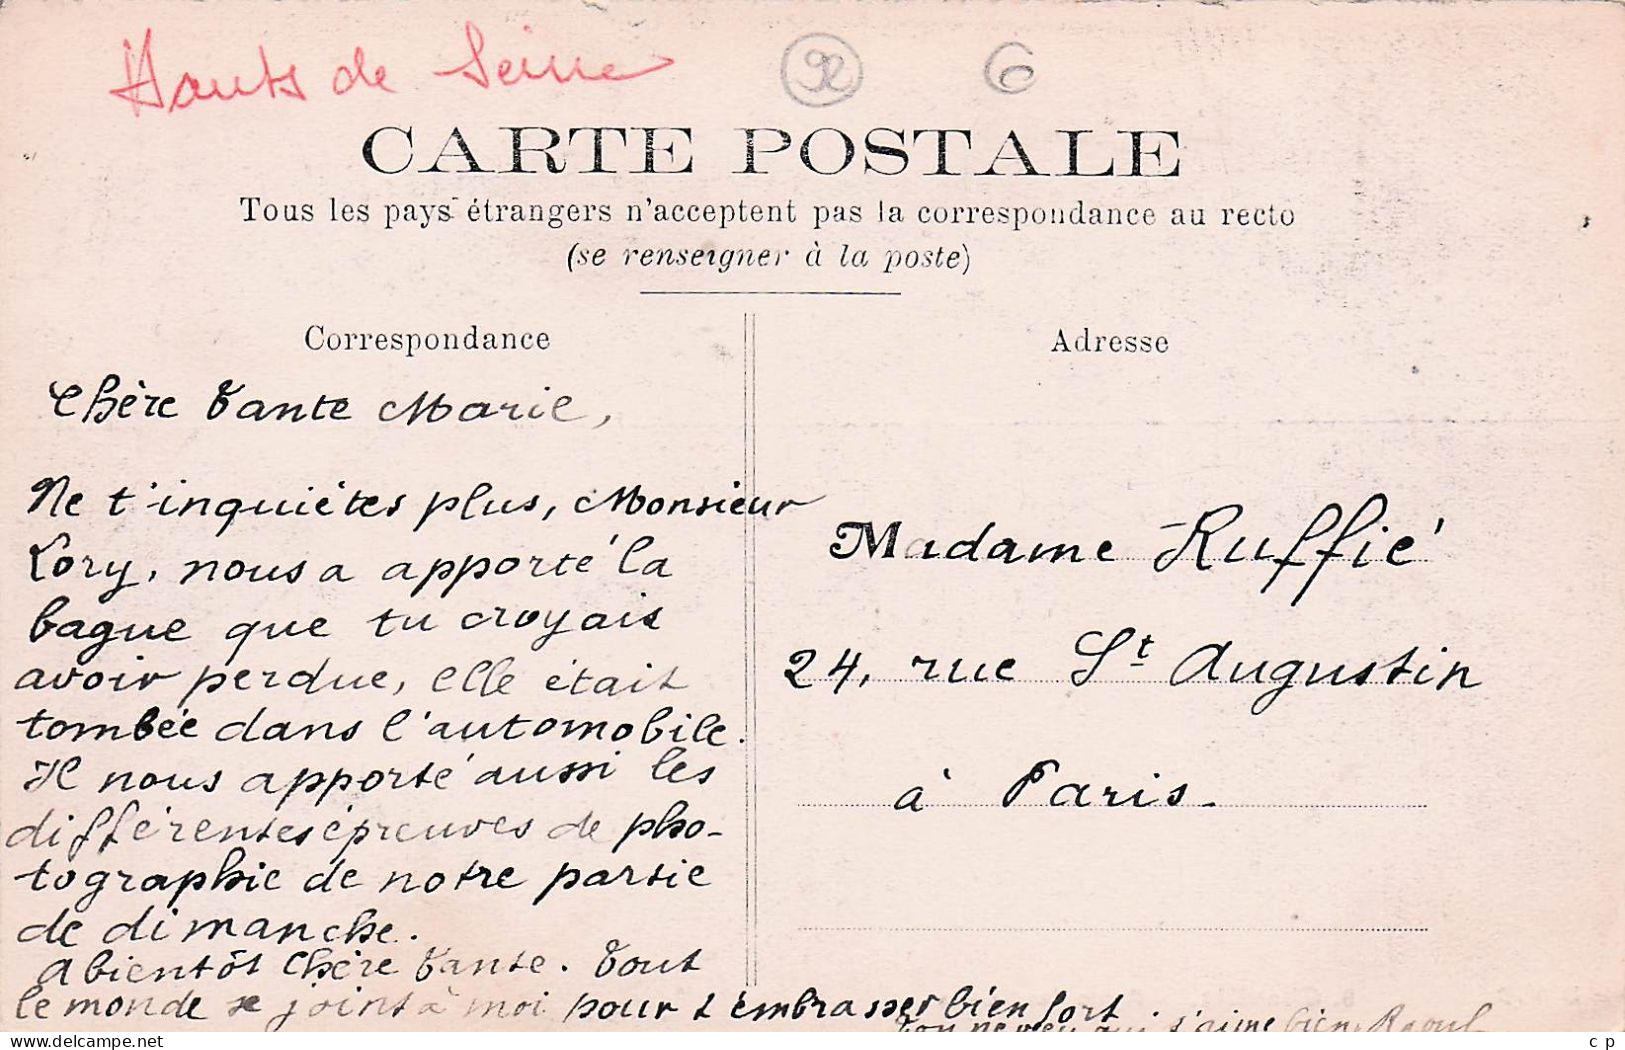 Hauts de Seine
92
6
CARTE POSTALE
Tous les pays étrangers n'acceptent pas la correspondance au recto
(se renseigner à la poste)
Correspondance
Chère Tante Marie,
Ne t'inquiètes plus, Monsieur
Lory, nous a apporté la
bague que tu croyais
avoir perdue, elle était
tombée dans l'automobile.
Il nous apporté aussi les
différentes épreuves de pho-
tographie de notre partie
de dimanche.
A bientôt Chère Tante. Tout
le monde se joint à moi pour t'embrasser bien fort
Ton neveu qui t'aime bien Raoul
Adresse
Madame Ruffié
24, rue St Augustin
à Paris.
c p